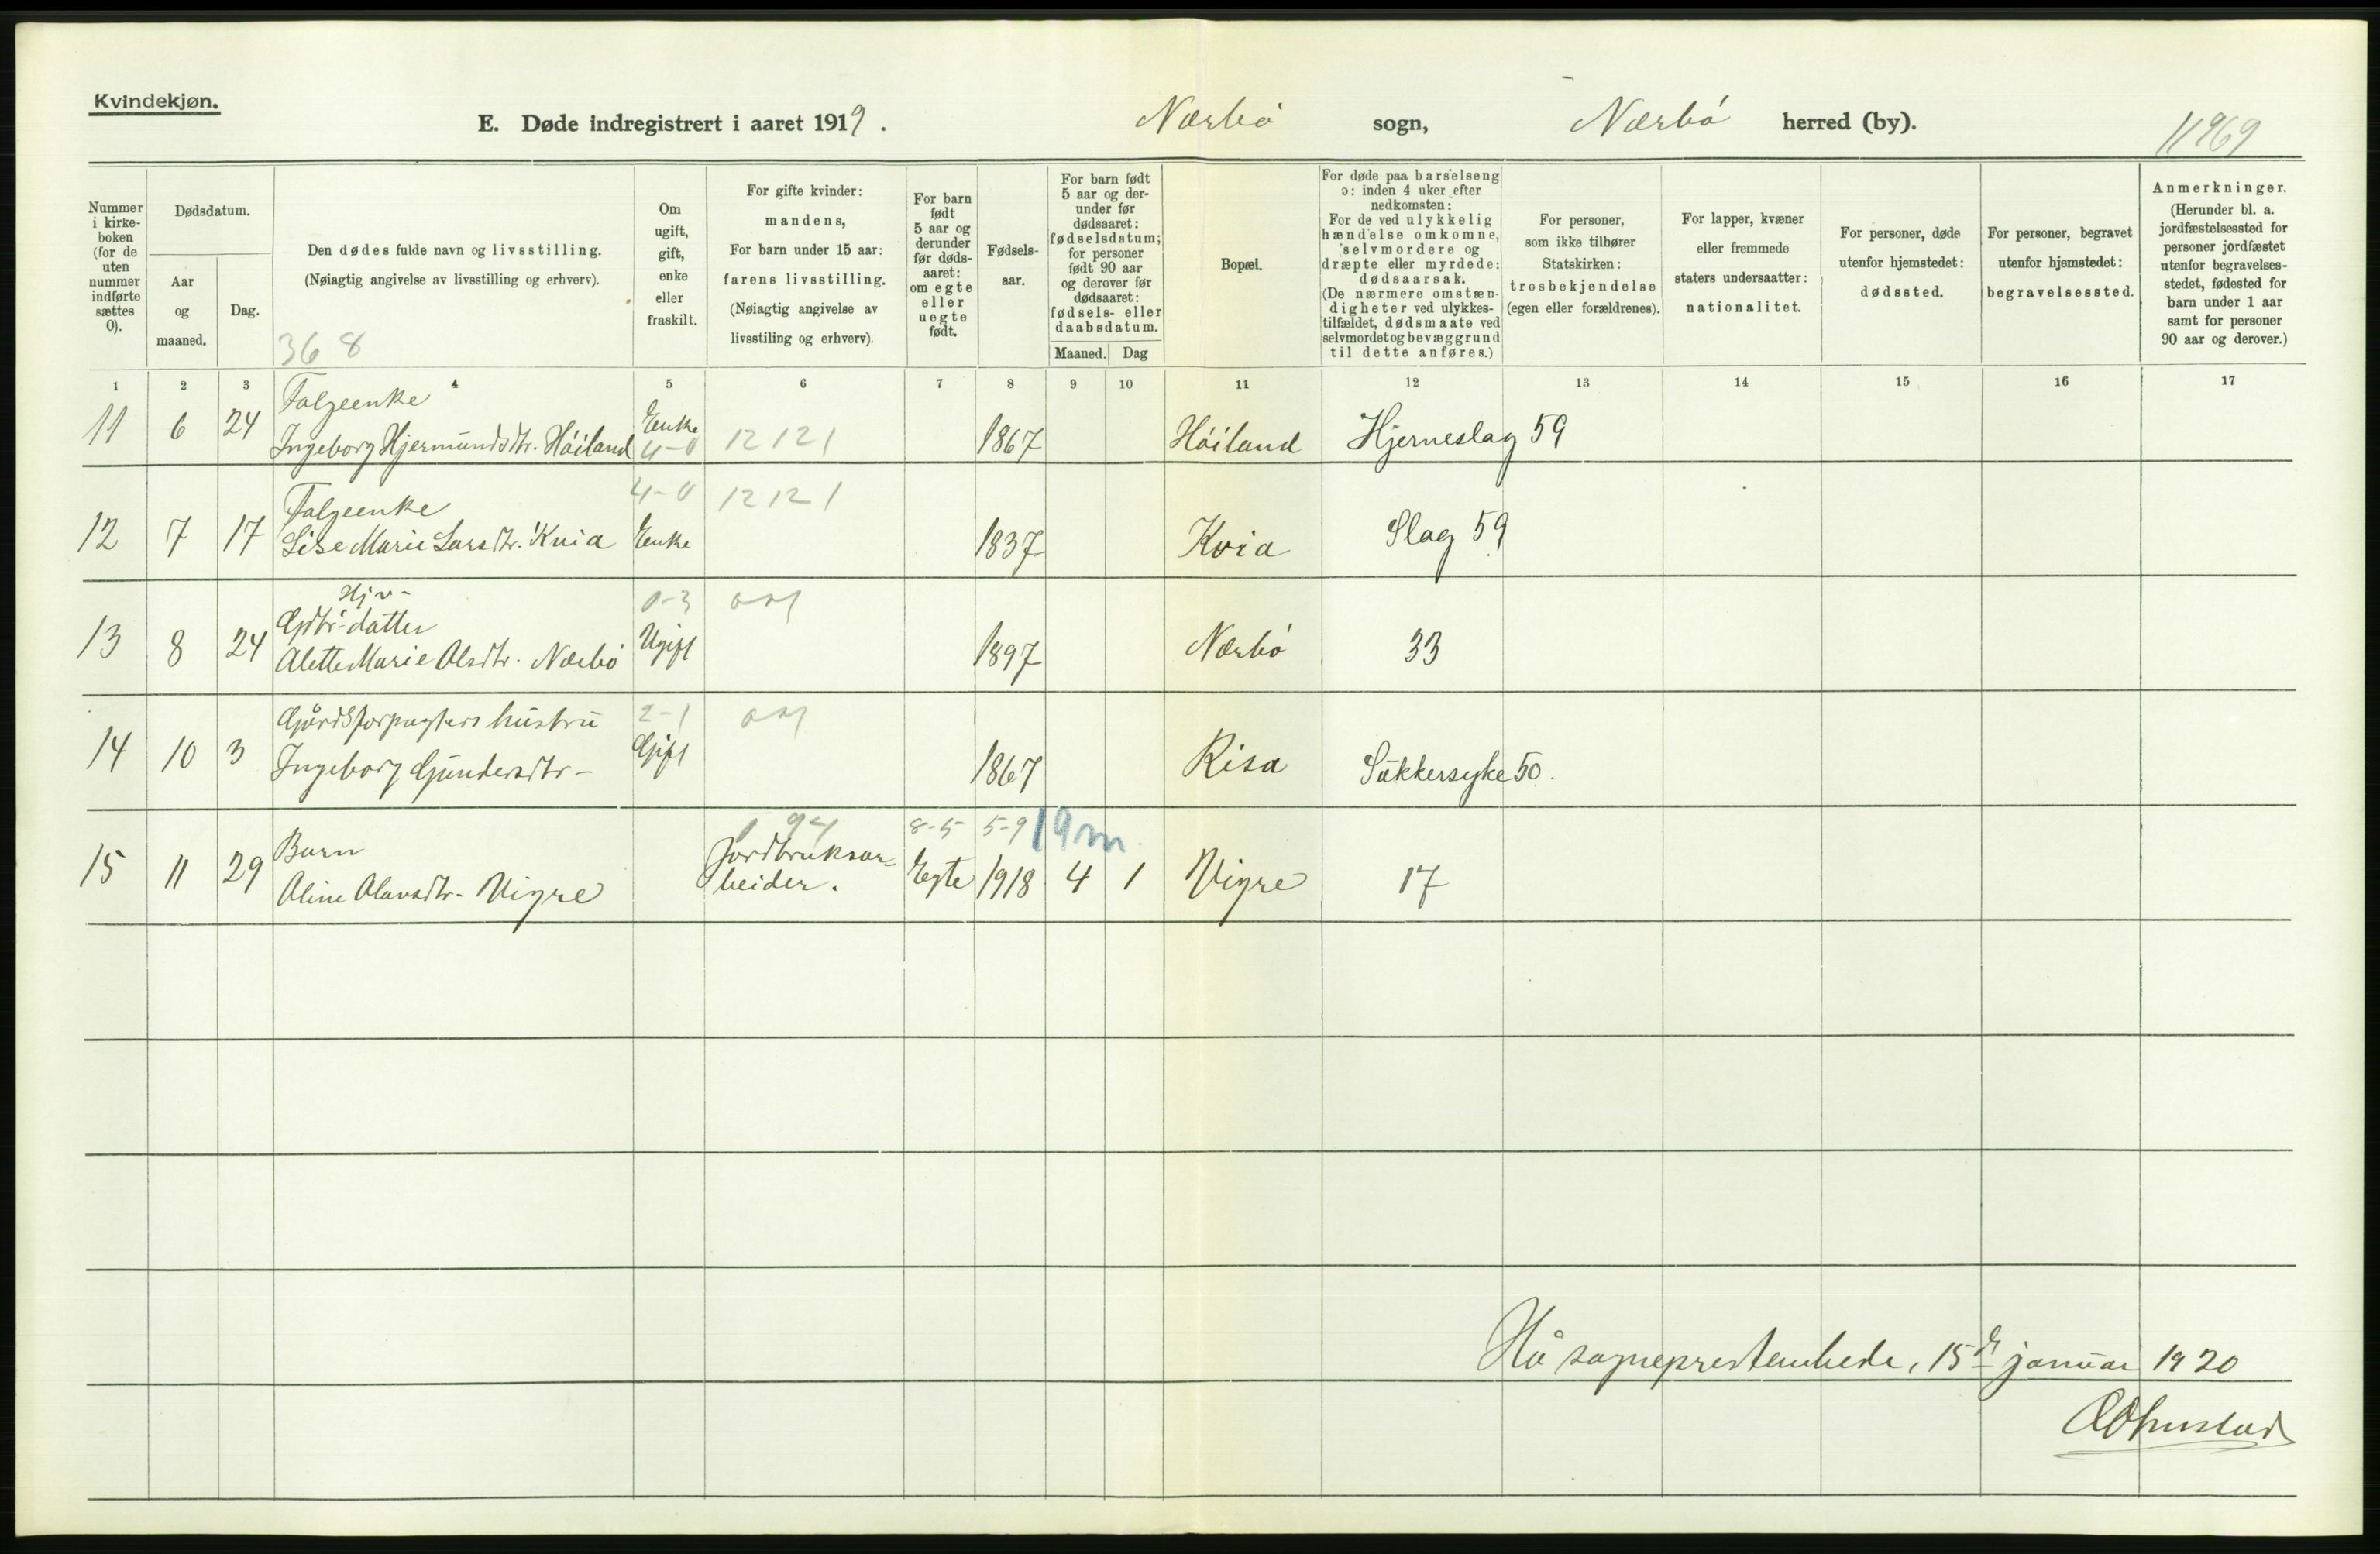 Kvindekjøn.
E. Døde indregistrert i aaret 1919. Nærbö sogn, Nærbö herred (by).
11969
Nummer i kirke-boken (for de uten nummer indførte sættes 0).
Dødsdatum.
Aar og maaned.
Dag.
Den dødes fulde navn og livsstilling.
(Nøiagtig angivelse av livsstilling og erhverv).
368
Om ugift, gift, enke eller fraskilt.
For gifte kvinder: mandens,
For barn under 15 aar: farens livsstilling.
(Nøiagtig angivelse av livsstiling og erhverv).
For barn født 5 aar og derunder før døds-aaret: om egte eller uegte født.
Fødsels-aar.
For barn født 5 aar og der-under før dødsaaret: fødselsdatum; for personer født 90 aar og derover før dødsaaret: fødsels- eller daabsdatum.
Maaned. Dag
Bopæl.
For døde paa barselseng ɔ: inden 4 uker efter nedkomsten:
For de ved ulykkelig hændelse omkomne, selvmordere og dræpte eller myrdede: dødsaarsak.
(De nærmere omstæn-digheter ved ulykkes-tilfældet, dødsmaate ved selvmordet og bevæggrund til dette anføres.)
For personer, som ikke tilhører Statskirken: trosbekjendelse (egen eller forældrenes).
For lapper, kvæner eller fremmede staters undersaatter: nationalitet.
For personer, døde utenfor hjemstedet: dødssted.
For personer, begravet utenfor hjemstedet: begravelsessted.
Anmerkninger.
(Herunder bl. a. jordfæstelsessted for personer jordfæstet utenfor begravelses-stedet, fødested for barn under 1 aar samt for personer 90 aar og derover.)
1 2 3 4 5 6 7 8 9 10 11 12 13 14 15 16 17
Folgeenke
11 6 24 Ingeborg Hjermundsdtr. Höiland Enke 4-0 12 12 1 1867 Höiland Hjerneslag 59
Folgeenke 4-0 12 12 1
12 7 17 Lise Marie Larsdtr. Kvia Enke 1837 Kvia Slag 59
Hjv-
Gdbr-datter 0-3
13 8 24 Alette Marie Olsdtr. Nærbö Ugift 1897 Nærbö 33
Gårdsforpagters hustru 2-1
14 10 3 Ingeborg Gundersdtr- Gift 1867 Risa Sukkersyke 50.
Barn 94 8-5 5-9 19m.
15 11 29 Aline Olavsdtr- Vigre Jordbruksar-beider. Egte 1918 4 1 Vigre 17
Hå sogneprestembede, 15de januar 1920